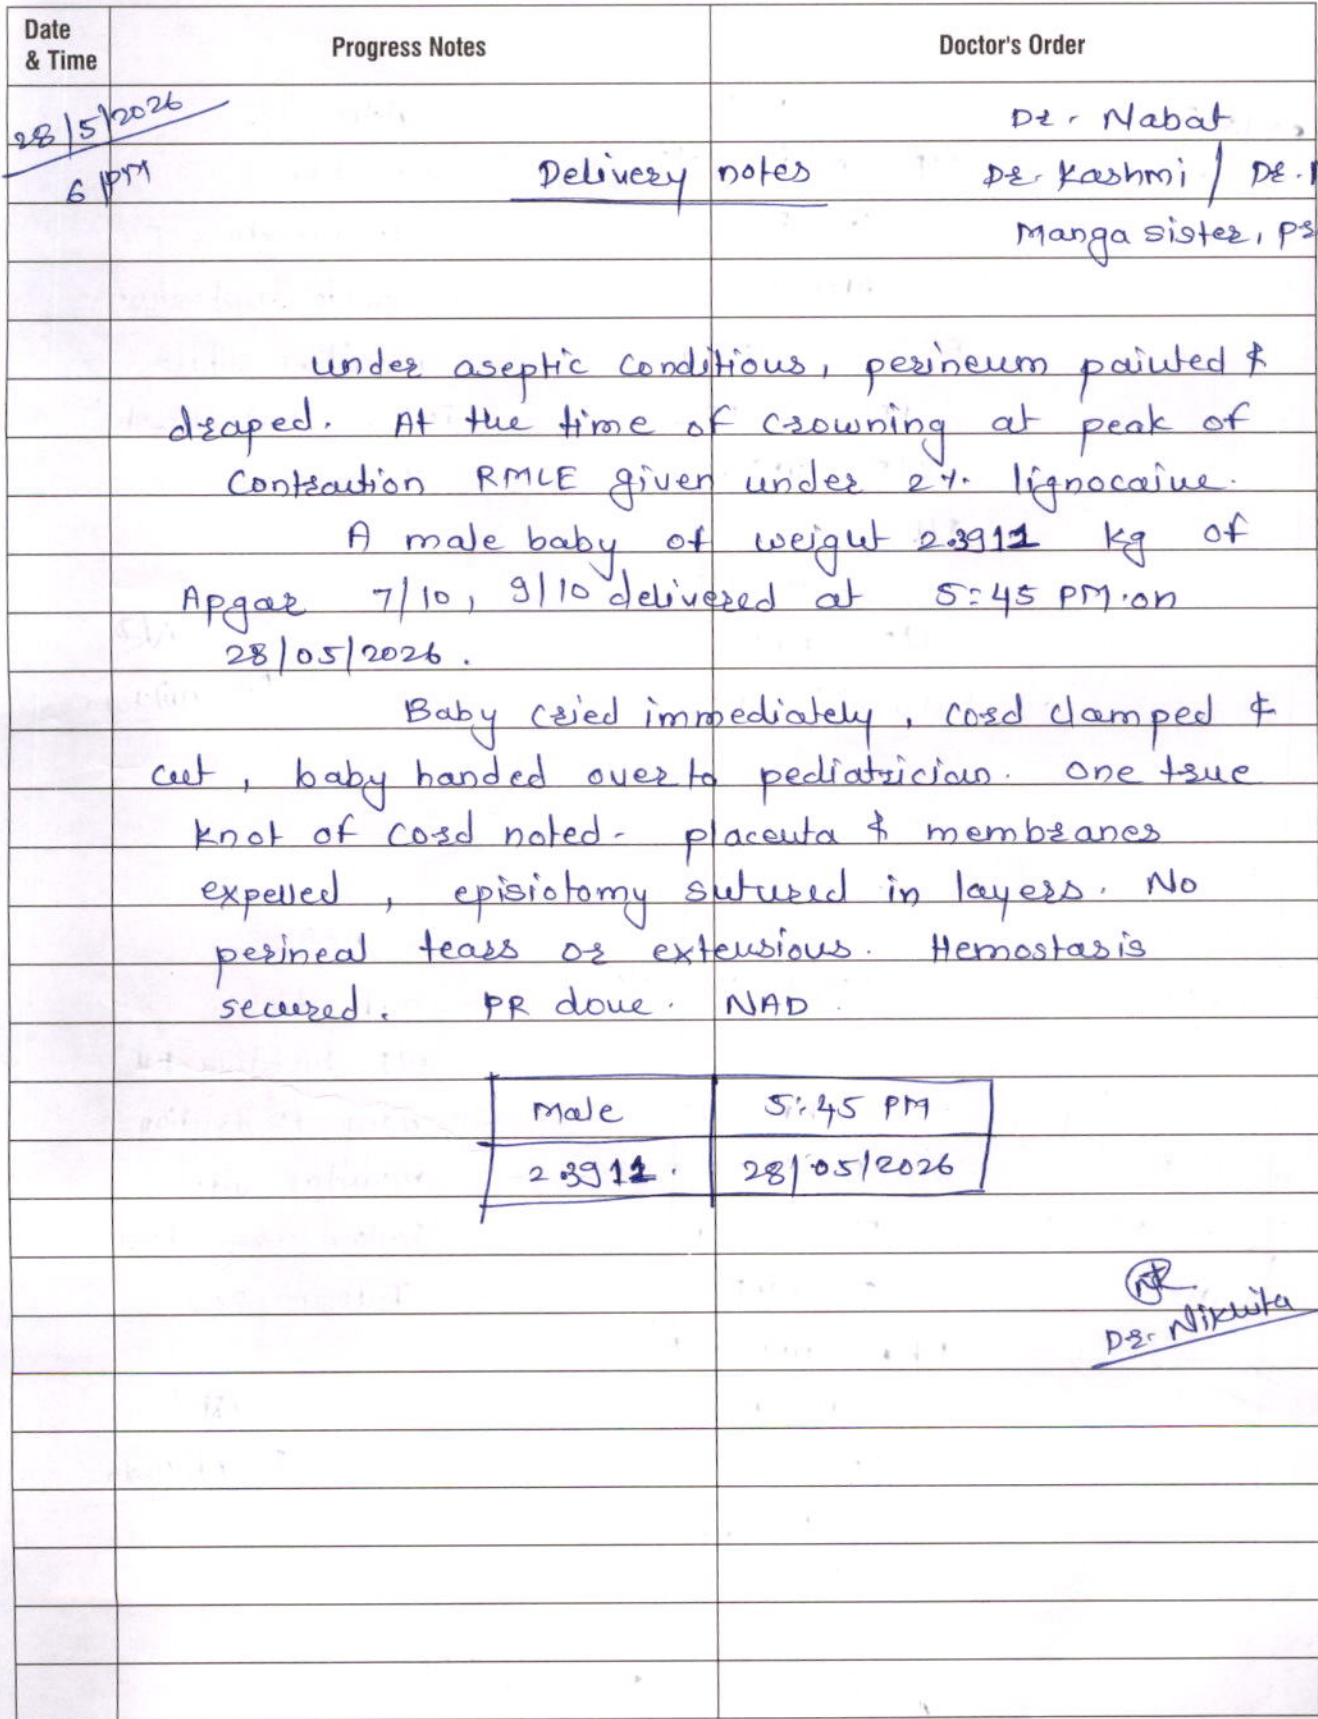 Date
& Time
Progress Notes
Doctor's Order
28/5/2026
6 pm
Delivery notes
Dr. Nabat
Dr. Kashmi / Dr.
Manga sister,
under aseptic conditions, perineum painted &
draped. At the time of crowning at peak of
contraction RMLE given under 2%. lignocaine.
A male baby of weight 2.3911 kg of
Apgar 7/10, 9/10 delivered at 5:45 PM. on
28/05/2026.
Baby cried immediately, cord clamped &
cut, baby handed over to pediatrician. one true
knot of cord noted - placenta & membranes
expelled, episiotomy sutured in layers. No
perineal tears or extensions. Hemostasis
secured. PR done. NAD.
Male 5:45 PM
2.3911. 28/05/2026
Dr. Nikhita